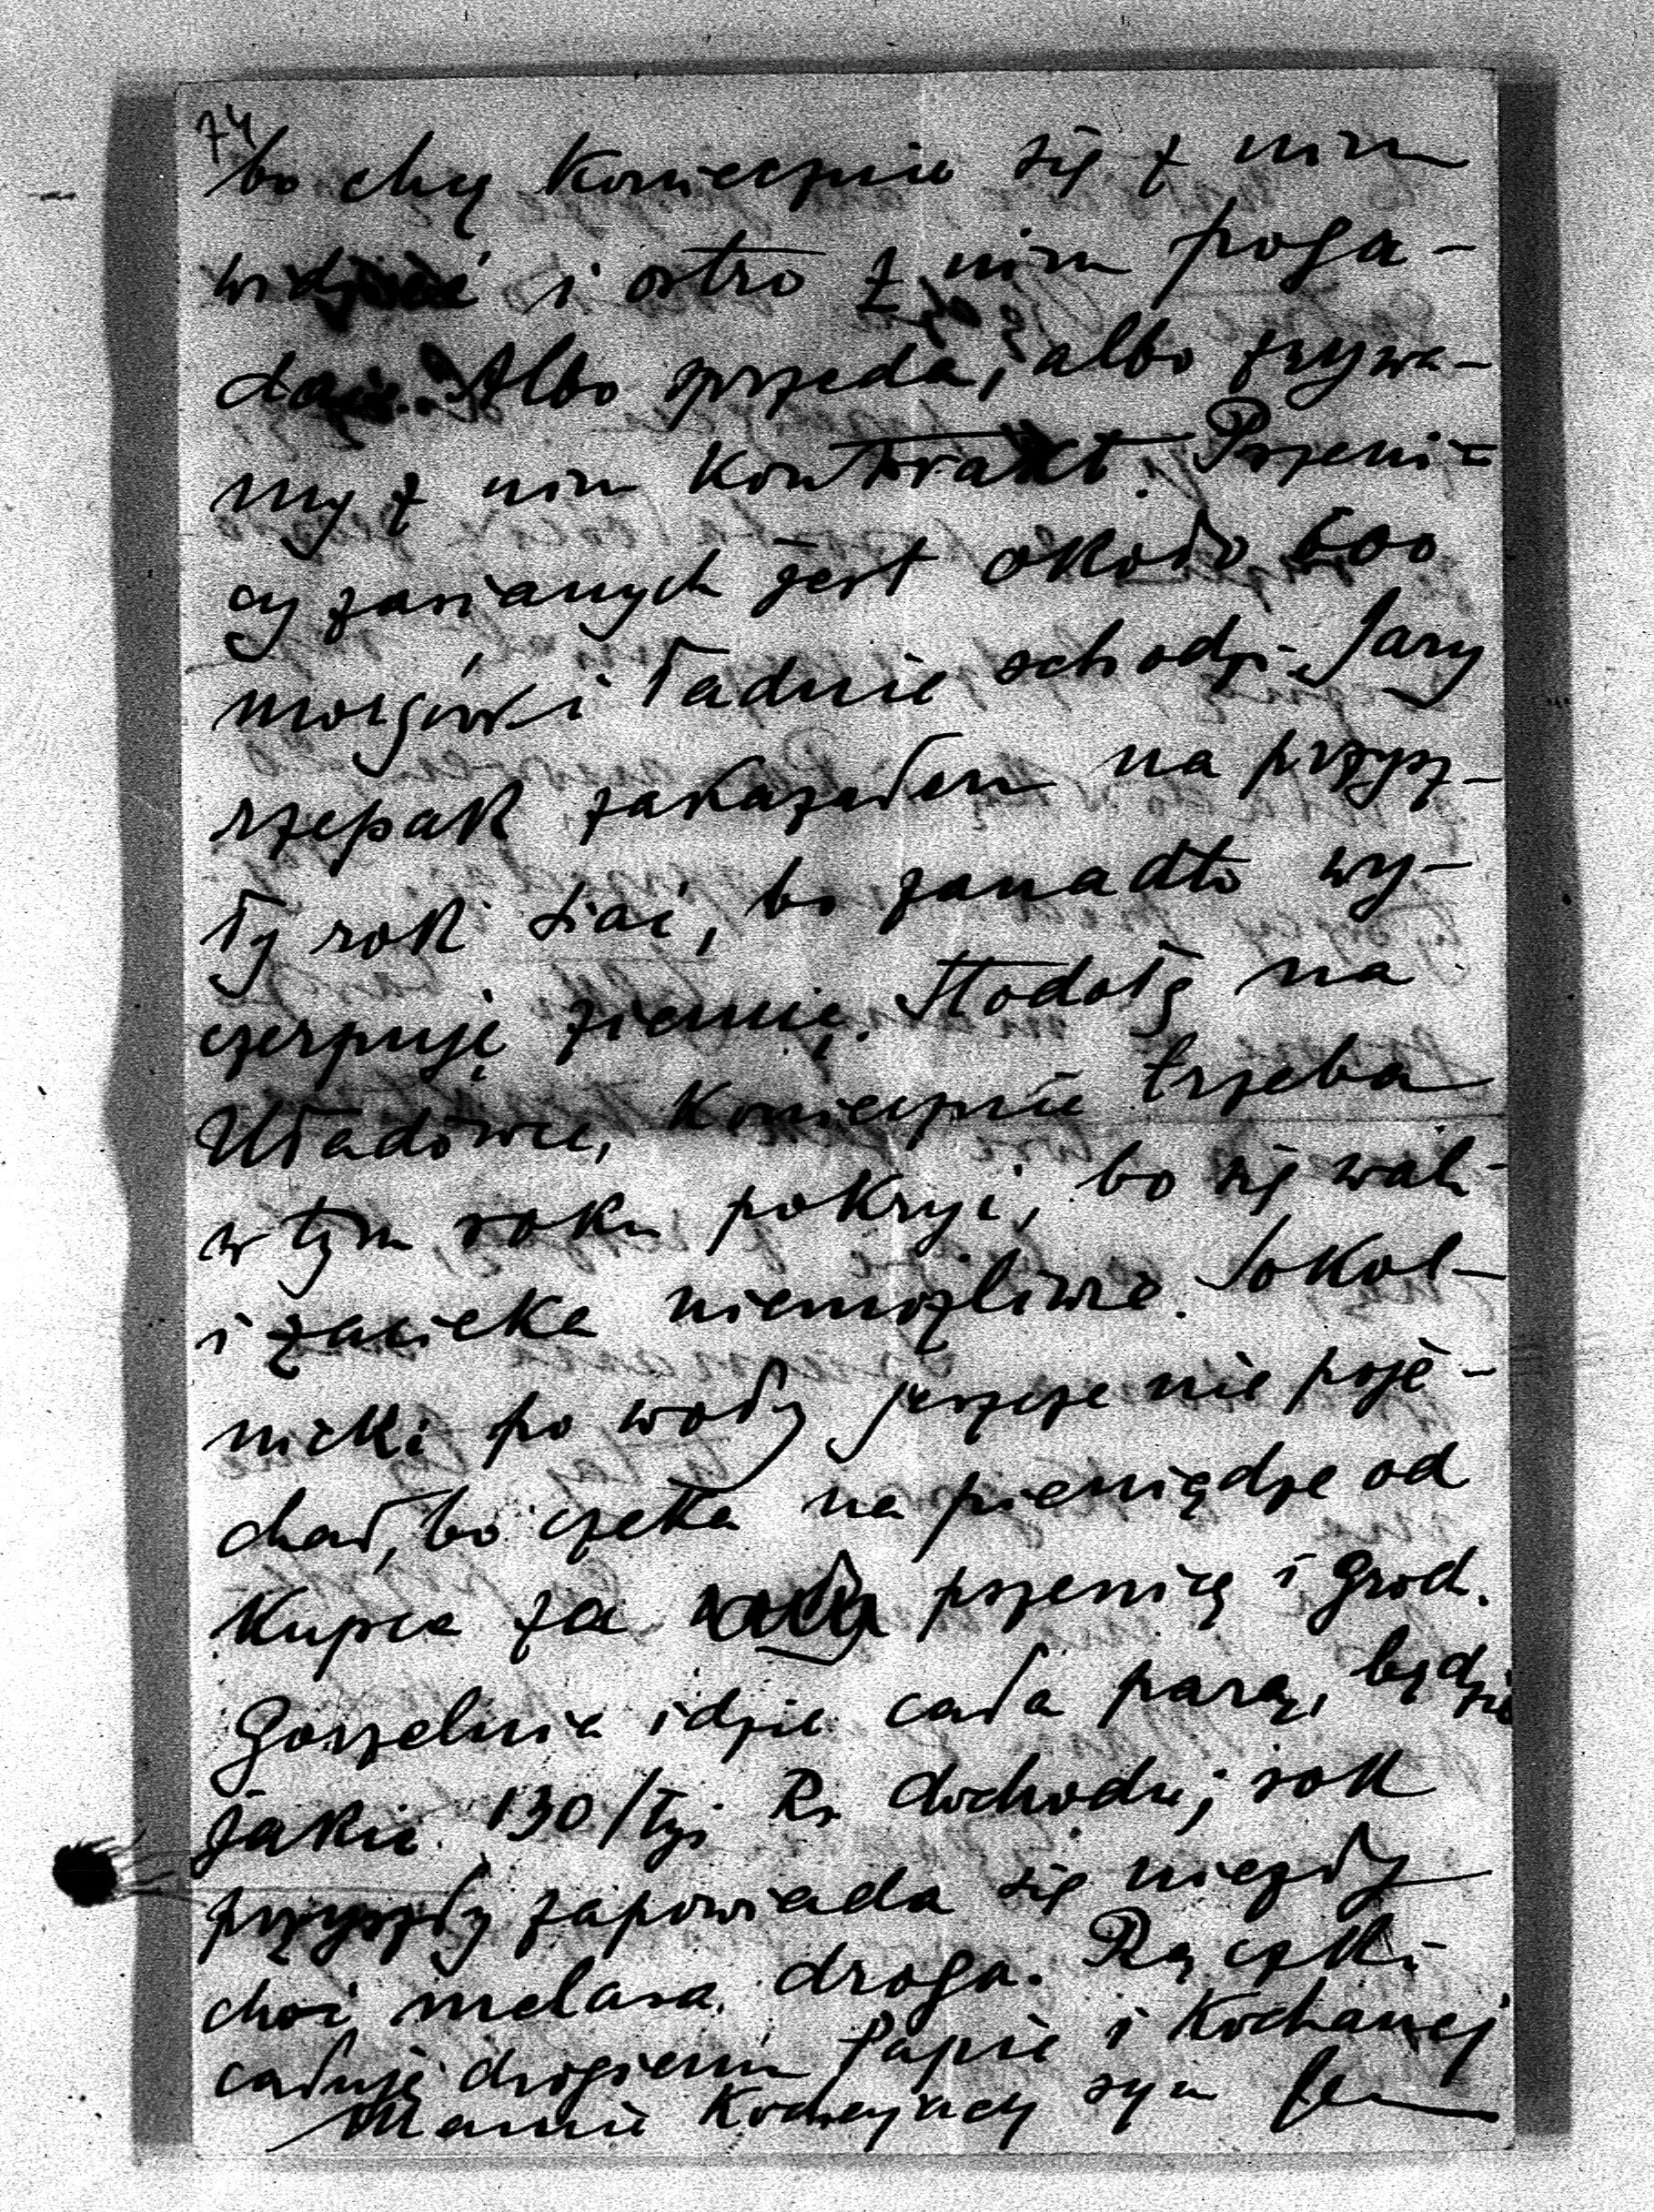 74
bo chcę koniecznie się z nim
widzieć i ostro z nim poga-
dać. Albo sprzeda, albo zrywa-
my z nim kontrakt. Pszeni-
cy zasianych jest około 600
morgów i ładnie schodzi. Jary
rzepak zakazałem na przysz-
ły rok siać, bo zanadto wy-
czerpuje ziemię. Stodołę na
Uładówce, koniecznie trzeba
w tym roku pokryć, bo się wali
i zacieka niemożliwie. Sokol-
nicki po woły jeszcze nie poje-
chał, bo czeka na pieniądze od
kupca za pszenicę i groch.
Gorzelnia idzie całą parą, będzie
jakie 130/tys Rs. dochodu; rok
przyszły zapowiada się niezły
choć melasa droga. Rączki
całuję drogiemu Papie i Kochanej
Mamie Kochający syn